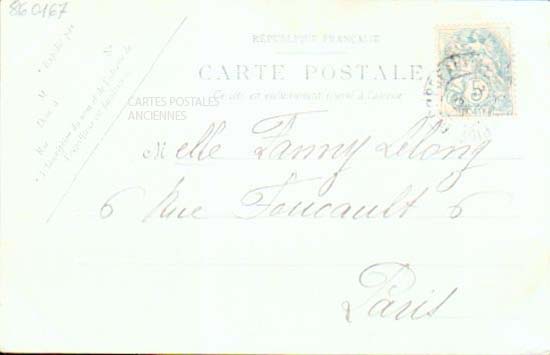 860167
RÉPUBLIQUE FRANÇAISE
CARTE POSTALE
Ce côté est exclusivement réservé à l'adresse
CARTES POSTALES
ANCIENNES
5c
Melle Fanny Lelong
6 Rue Foucault 6
Paris